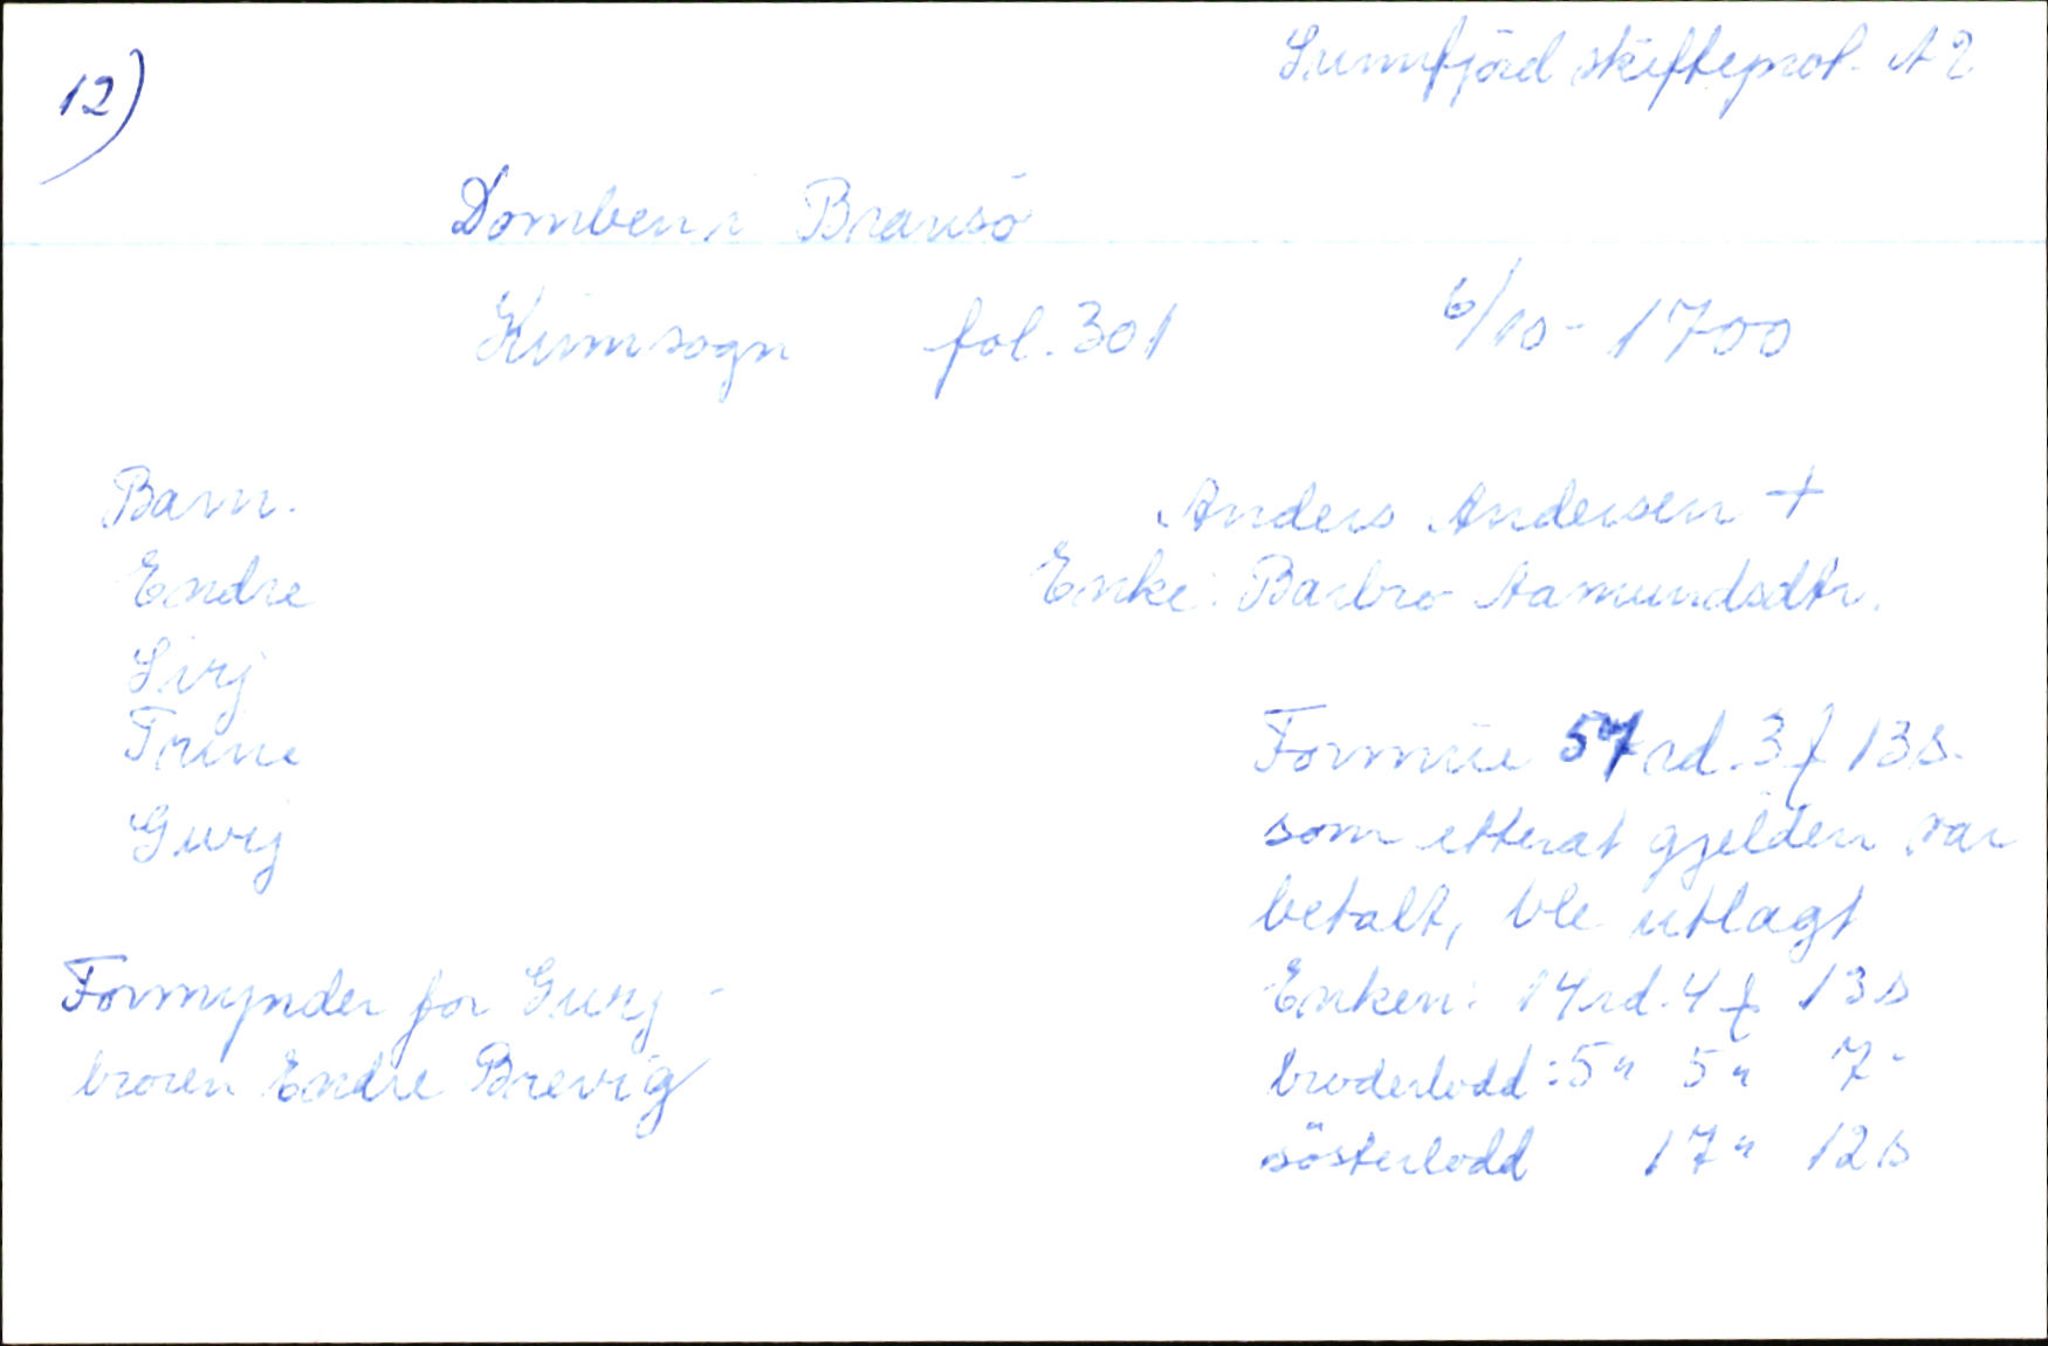 12)
Sunnfjord skifteprot. A 2
Domben i Bransö
Kinnsogn fol. 301 6/10 - 1700
Barn.
Endre
Sirj
Trine
Gurj
Formynder for Gurj -
broren Endre Brevig
Anders Andersen +
Enke: Barbro Aamundsdtr.
Formue 57 rd. 3 ƒ 13 s.
som etterat gjelden var
betalt, ble utlagt
Enken: 14 rd. 4 ƒ 13 s
broderlodd: 5 " 5 " 7 -
sösterlodd 17 " 12 s